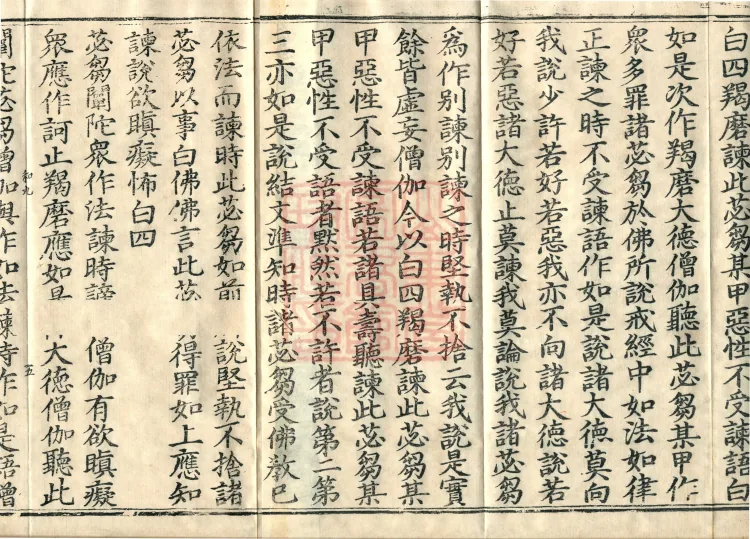 白四羯磨諫此苾芻某甲惡性不受諫語白
如是次作羯磨大德僧伽聽此苾芻某甲作
眾多罪諸苾芻於佛所說戒經中如法如律
正諫之時不受諫語作如是說諸大德莫向
我說少許若好若惡我亦不向諸大德說若
好若惡諸大德止莫諫我莫論說我諸苾芻
為作別諫別諫之時堅執不捨云我說是實
餘皆虛妄僧伽今以白四羯磨諫此苾芻某
甲惡性不受諫語若諸具壽聽諫此苾芻某
甲惡性不受語者默然若不許者說第二第
三亦如是說結文準知時諸苾芻受佛教已
依法而諫時此苾芻如前說堅執不捨諸
苾芻以事白佛佛言此苾得罪如上應知
諫說欲瞋癡怖白四
苾芻闡陀眾作法諫時謗僧伽有欲瞋癡
眾應作訶止羯磨應如是大德僧伽聽此
和九
五
闡陀苾芻僧伽與作如法諫時作如是語僧